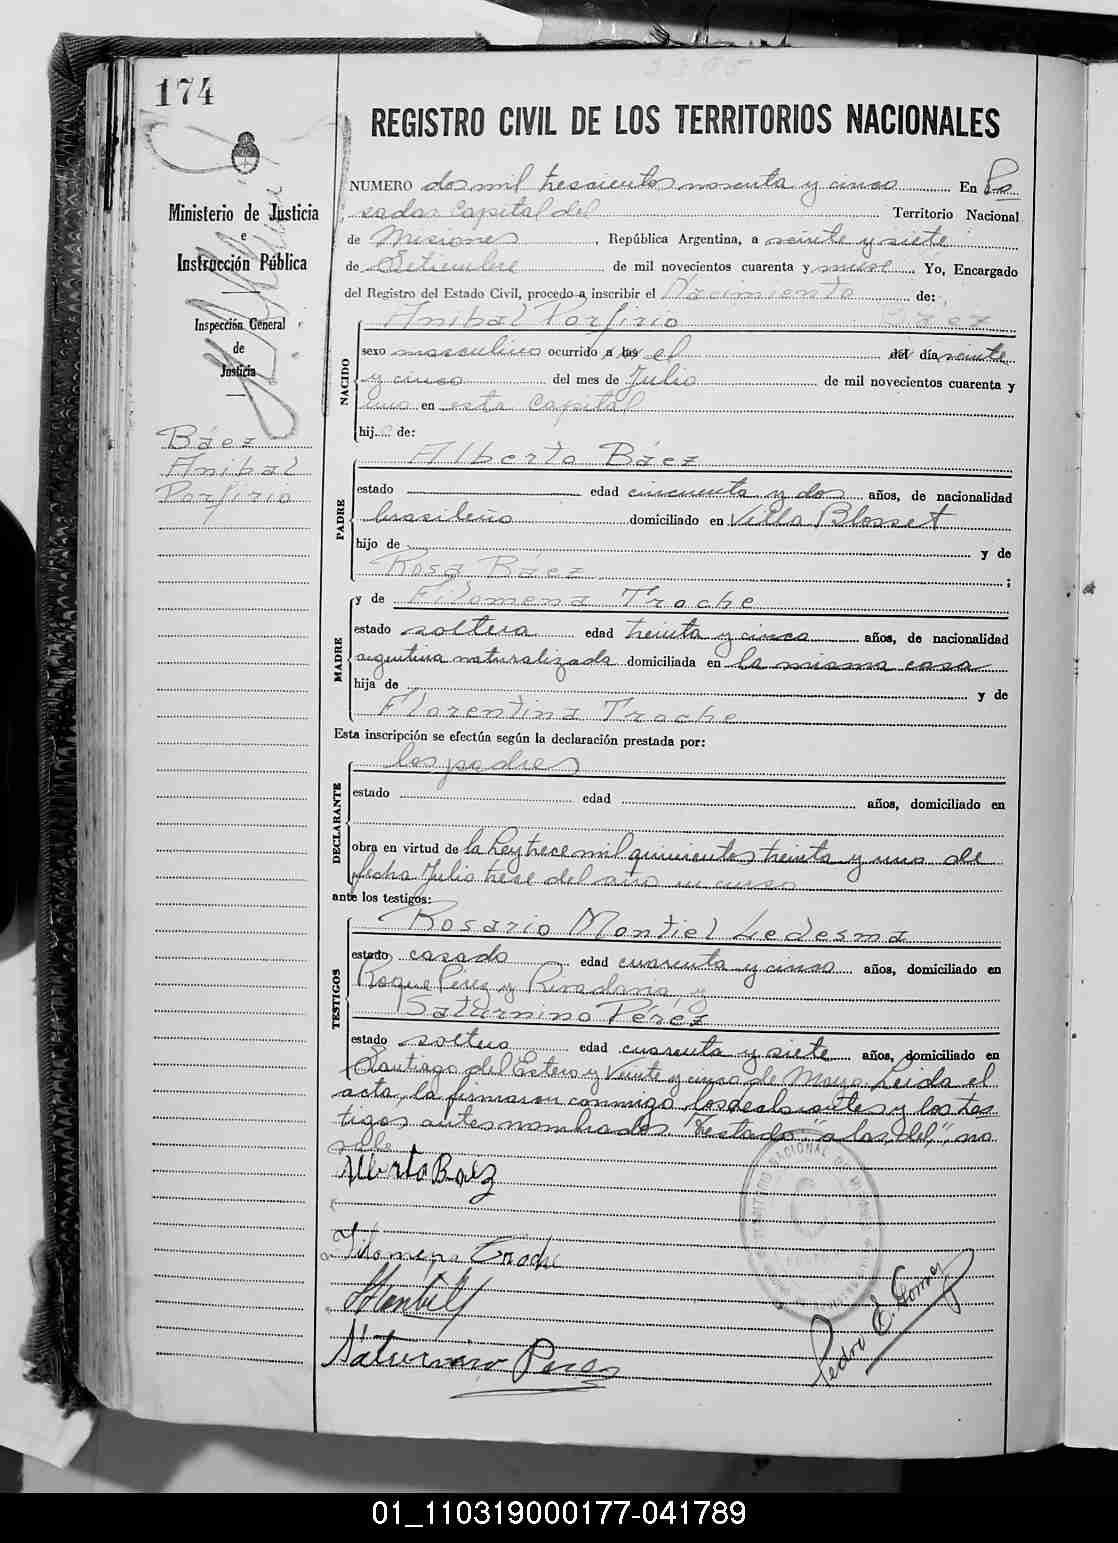 2395
174
REGISTRO CIVIL DE LOS TERRITORIOS NACIONALES
Ministerio de Justicia
e
Instrucción Pública
Inspección General
de
Justicia
Báez
Anibal
Porfirio
NUMERO dos mil trescientos noventa y cinco En Po
sadas Capital del Territorio Nacional
de Misiones, República Argentina, a veinte y siete
de Setiembre de mil novecientos cuarenta y nueve. Yo, Encargado
del Registro del Estado Civil, procedo a inscribir el Nacimiento de:
NACIDO
Anibal Porfirio Báez
sexo masculino ocurrido a las el del día veinte
y cinco del mes de Julio de mil novecientos cuarenta y
uno en esta Capital
hij... de:
PADRE
Alberto Báez
estado edad cincuenta y dos años, de nacionalidad
brasileño domiciliado en Villa Blosset
hijo de y de
Rosa Báez ;
MADRE
y de Filomena Troche
estado soltera edad treinta y cinco años, de nacionalidad
argentina naturalizada domiciliada en la misma casa
hija de y de
Florentina Troche
Esta inscripción se efectúa según la declaración prestada por:
DECLARANTE
los padres
estado edad años, domiciliado en
obra en virtud de la Ley trece mil quinientos treinta y uno de
fecha Julio trece del año en curso
ante los testigos:
TESTIGOS
Rosario Montiel Ledesma
estado casado edad cuarenta y cinco años, domiciliado en
Roque Pérez y Rivadavia, y
Saturnino Pérez
estado soltero edad cuarenta y siete años, domiciliado en
Santiago del Estero y Veinte y cinco de Mayo. Leida el
acta, la firmaron conmigo, los declarantes y los tes
tigos antes nombrados. Testado: "a las, del", no
vale.
Alberto Baez
Filomena Troche
Saturnino Perez
Pedro E. Gomez
01_110319000177-041789